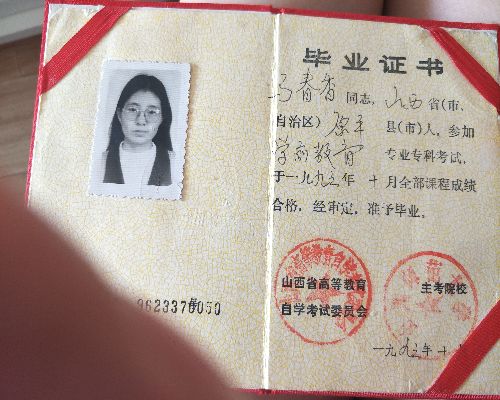 毕业证书
马春香 同志，山西省（市、
自治区）原平县（市）人，参加
学前教育专业专科考试，
于一九九三年十月全部课程成绩
合格，经审定，准予毕业。
山西省高等教育
自学考试委员会
主考院校
一九九三年十
0623370050